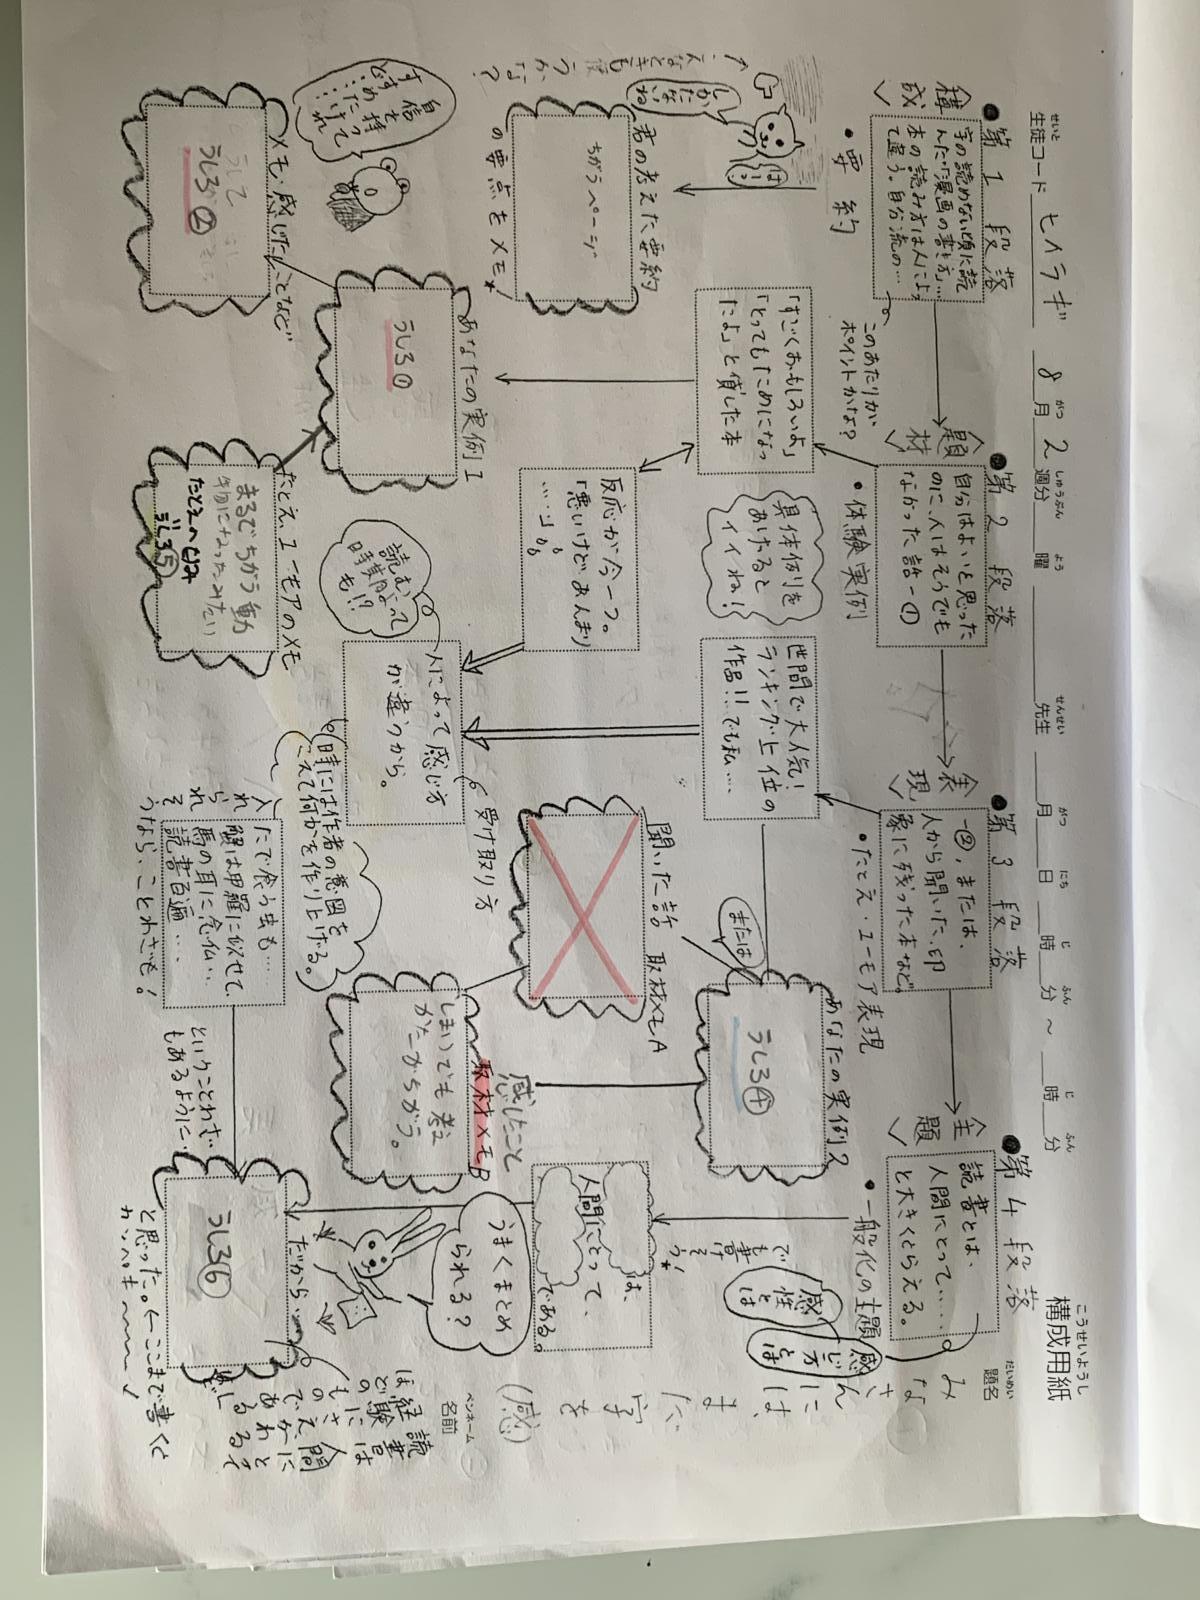 構成用紙
題名
ペンネーム
名前
生徒コード ヒイラギ 8月2週分 曜 先生 月 日 時 分 ~ 時 分
せいと
がつ
しゅうぶん
よう
せんせい
がつ
にち
じ
ふん
じ
ふん
こうせいようし
だいめい
●第1段落
<構成>
字の読めない頃に読
んだ漫画の書き方…
本の読み方は人によっ
て違う。自分流の…
このあたりが
ポイントかな?
・要約
はい
しかたないね
君の考えた要約
ちがうページ
の要点をメモ*
●第2段落
<題材>
自分はよいと思った
のに、人はそうでも
なかった話-①
・体験実例
具体例を
あげると
イイね!
「すごくおもしろいよ」
「とってもためになっ
たよ」と貸した本
反応が今一つ。
「悪いけどあんまり
……」
あなたの実例1
うしろ①
メモ・感じたことなど
うしろ②
自信を持って
すすめたけれ
ど……
たとえ、ユーモアのメモ
まるでちがう動
物になったみたい
たとえへとぶみ
うしろ⑤
●第3段落
<表現>
-②、または、
人から聞いた、印
象に残った本など。
・たとえ・ユーモア表現
世間で大人気!
ランキング上位の
作品!!でも私…
人によって感じ方
が違うから。
読む
時期によって
も!?
受け取り方
時には作者の意図を
こえて何かを作り上げる。
または
あなたの実例2
うしろ④
聞いた話 取材メモA
感じたこと
取材メモB
しまいでも考え
かたーからがう。
たで食う虫も…
蟹は甲羅に似せて、
馬の耳に念仏…
読書百遍…
入れられそうなら、ことわざも!
ということわざ
もあるように…
●第4段落
<主題>
読書とは、
人間にとって……
と大きくとらえる。
・一般化の主題
感性とは
感じ方とは
でも書けそう!*
は、
人間にとって、
である。
うまくまとめ
られる?
だから…
うしろ⑥
と思った。(←ここまで書くと
カンペキ~~~!
みなさんには、まだ字を
(感)